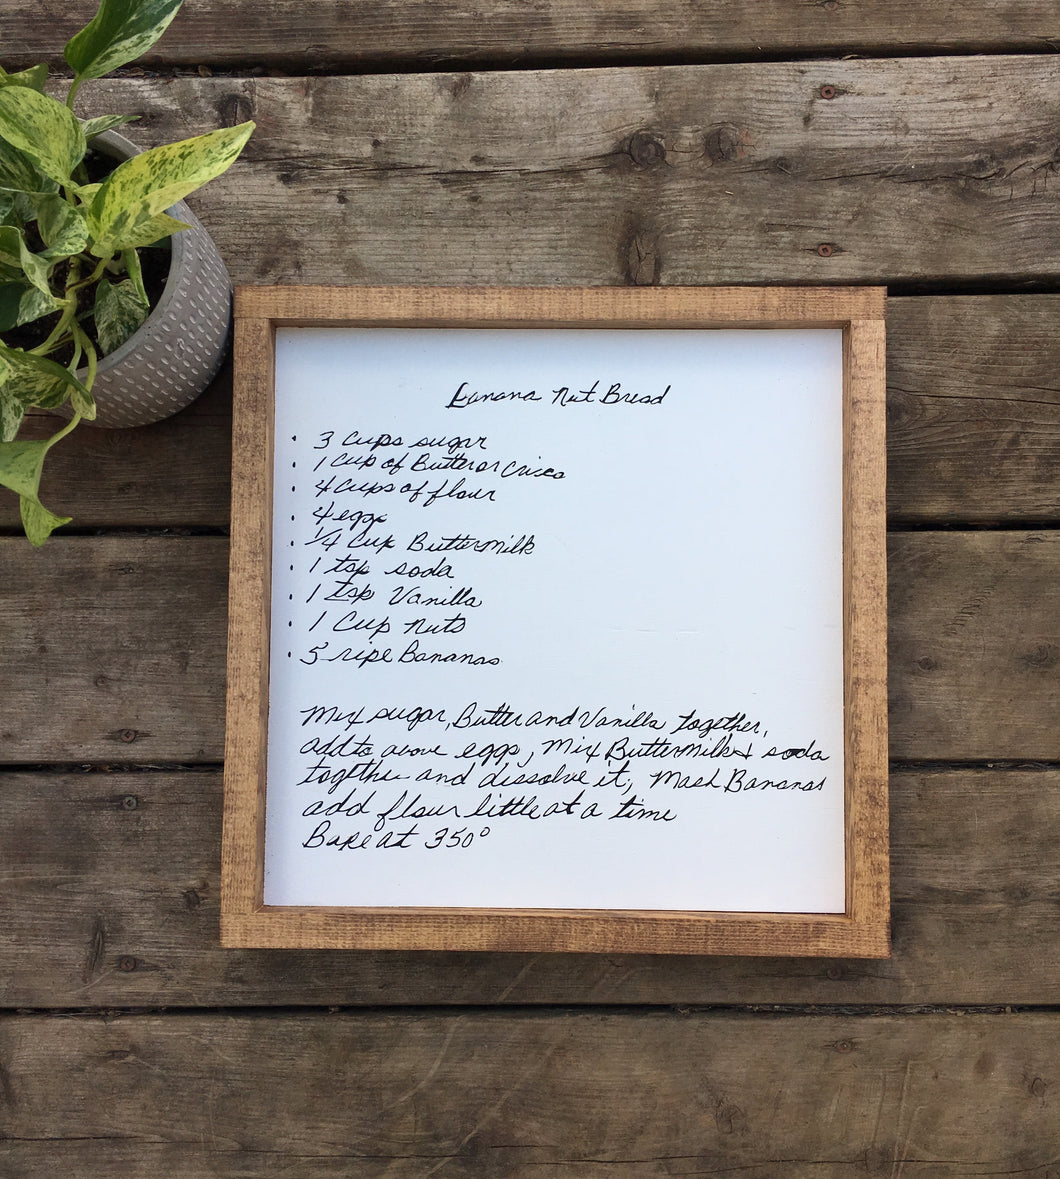 Banana Nut Bread
• 3 Cups sugar
• 1 Cup of Butter or Crisco
• 4 Cups of flour
• 4 eggs
• 1/4 Cup Buttermilk
• 1 tsp soda
• 1 tsp Vanilla
• 1 Cup nuts
• 5 ripe Bananas
Mix sugar, Butter and Vanilla together,
add to above eggs, Mix Buttermilk & soda
togther and dissolve it, Mash Bananas
add flour little at a time
Bake at 350°